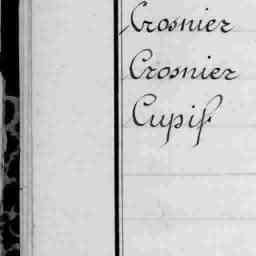 Crosnier
Crosnier
Cupif